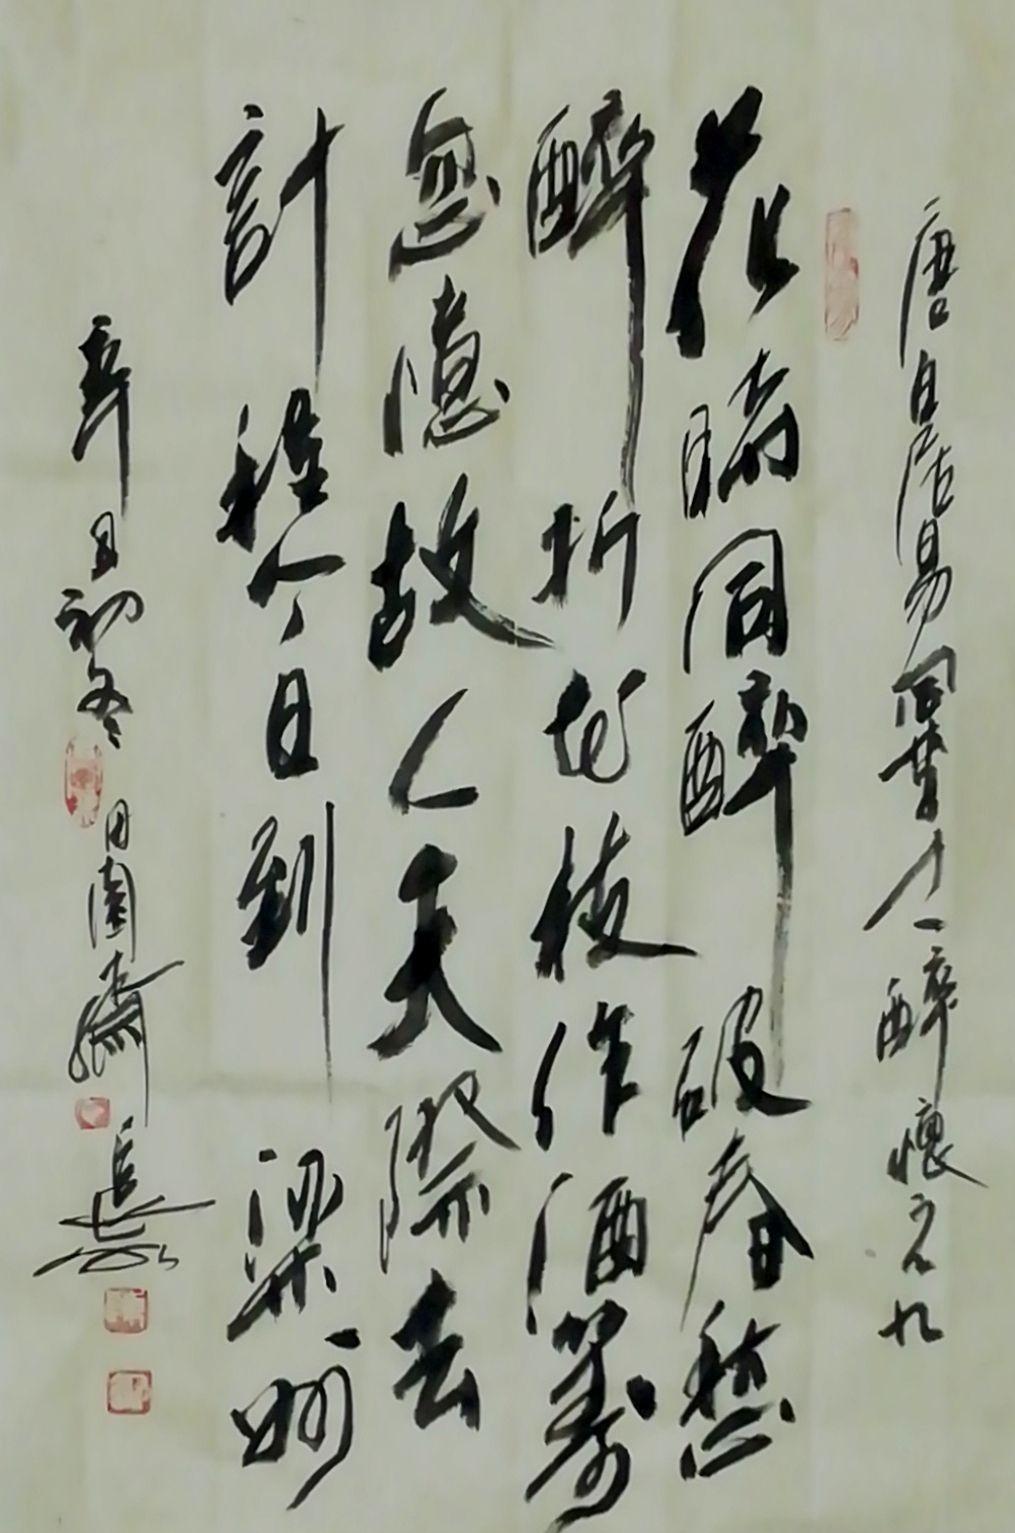 唐白居易同李十一醉憶元九
花時同醉破春愁
醉折花枝作酒籌
忽憶故人天際去
計程今日到梁州
辛丑初冬
田園齋